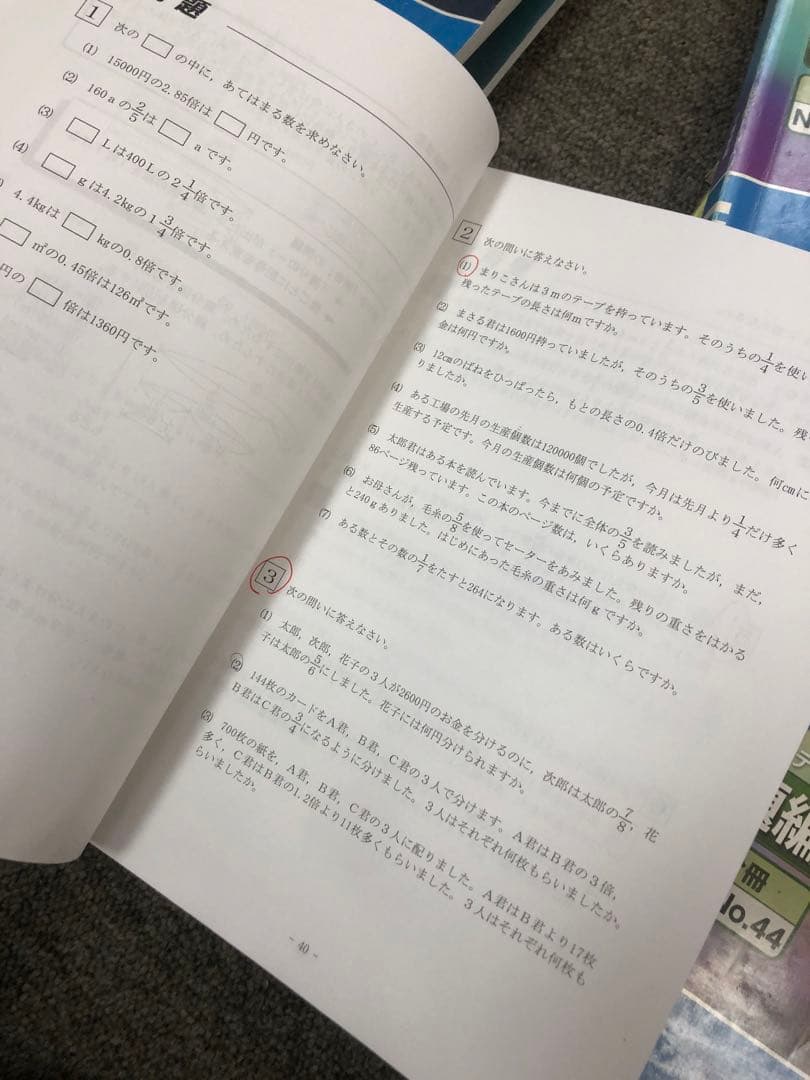 題
1 次の□の中に，あてはまる数を求めなさい。
(1) 15000円の2.85倍は□円です。
(2) 160aの2/5は□aです。
(3) □Lは400Lの2 1/4倍です。
(4) □gは4.2kgの1 3/4倍です。
4.4kgは□kgの0.8倍です。
□㎡の0.45倍は126㎡です。
円の□倍は1360円です。
2 次の問いに答えなさい。
(1) まりこさんは3mのテープを持っています。そのうちの1/4を使い
残ったテープの長さは何mですか。
(2) まさる君は1600円持っていましたが，そのうちの3/5を使いました。残
金は何円ですか。
(3) 12㎝のばねをひっぱったら，もとの長さの0.4倍だけのびました。何㎝に
りましたか。
(4) ある工場の先月の生産個数は120000個でしたが，今月は先月より1/4だけ多く
生産する予定です。今月の生産個数は何個の予定ですか。
(5) 太郎君はある本を読んでいます。今までに全体の3/5を読みましたが，まだ，
86ページ残っています。この本のページ数は，いくらありますか。
(6) お母さんが，毛糸の5/8を使ってセーターをあみました。残りの重さをはかる
と240gありました。はじめにあった毛糸の重さは何gですか。
(7) ある数とその数の1/7をたすと264になります。ある数はいくらですか。
3 次の問いに答えなさい。
(1) 太郎，次郎，花子の3人が2600円のお金を分けるのに，次郎は太郎の7/8，花
子は太郎の5/6にしました。花子には何円分けられますか。
(2) 144枚のカードをA君，B君，C君の3人で分けます。A君はB君の3倍，
B君はC君の3/4になるように分けました。3人はそれぞれ何枚もらいましたか。
(3) 700枚の紙を，A君，B君，C君の3人に配りました。A君はB君より17枚
多く，C君はB君の1.2倍より11枚多くもらいました。3人はそれぞれ何枚も
らいましたか。
- 40 -
編
冊
No.44